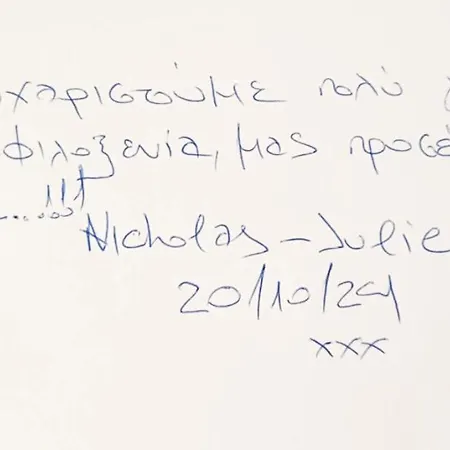 χαριστούμε πολύ
φιλοξενία, μας προσέ
......!!!
Nicholas - Julie
20/10/24
xxx